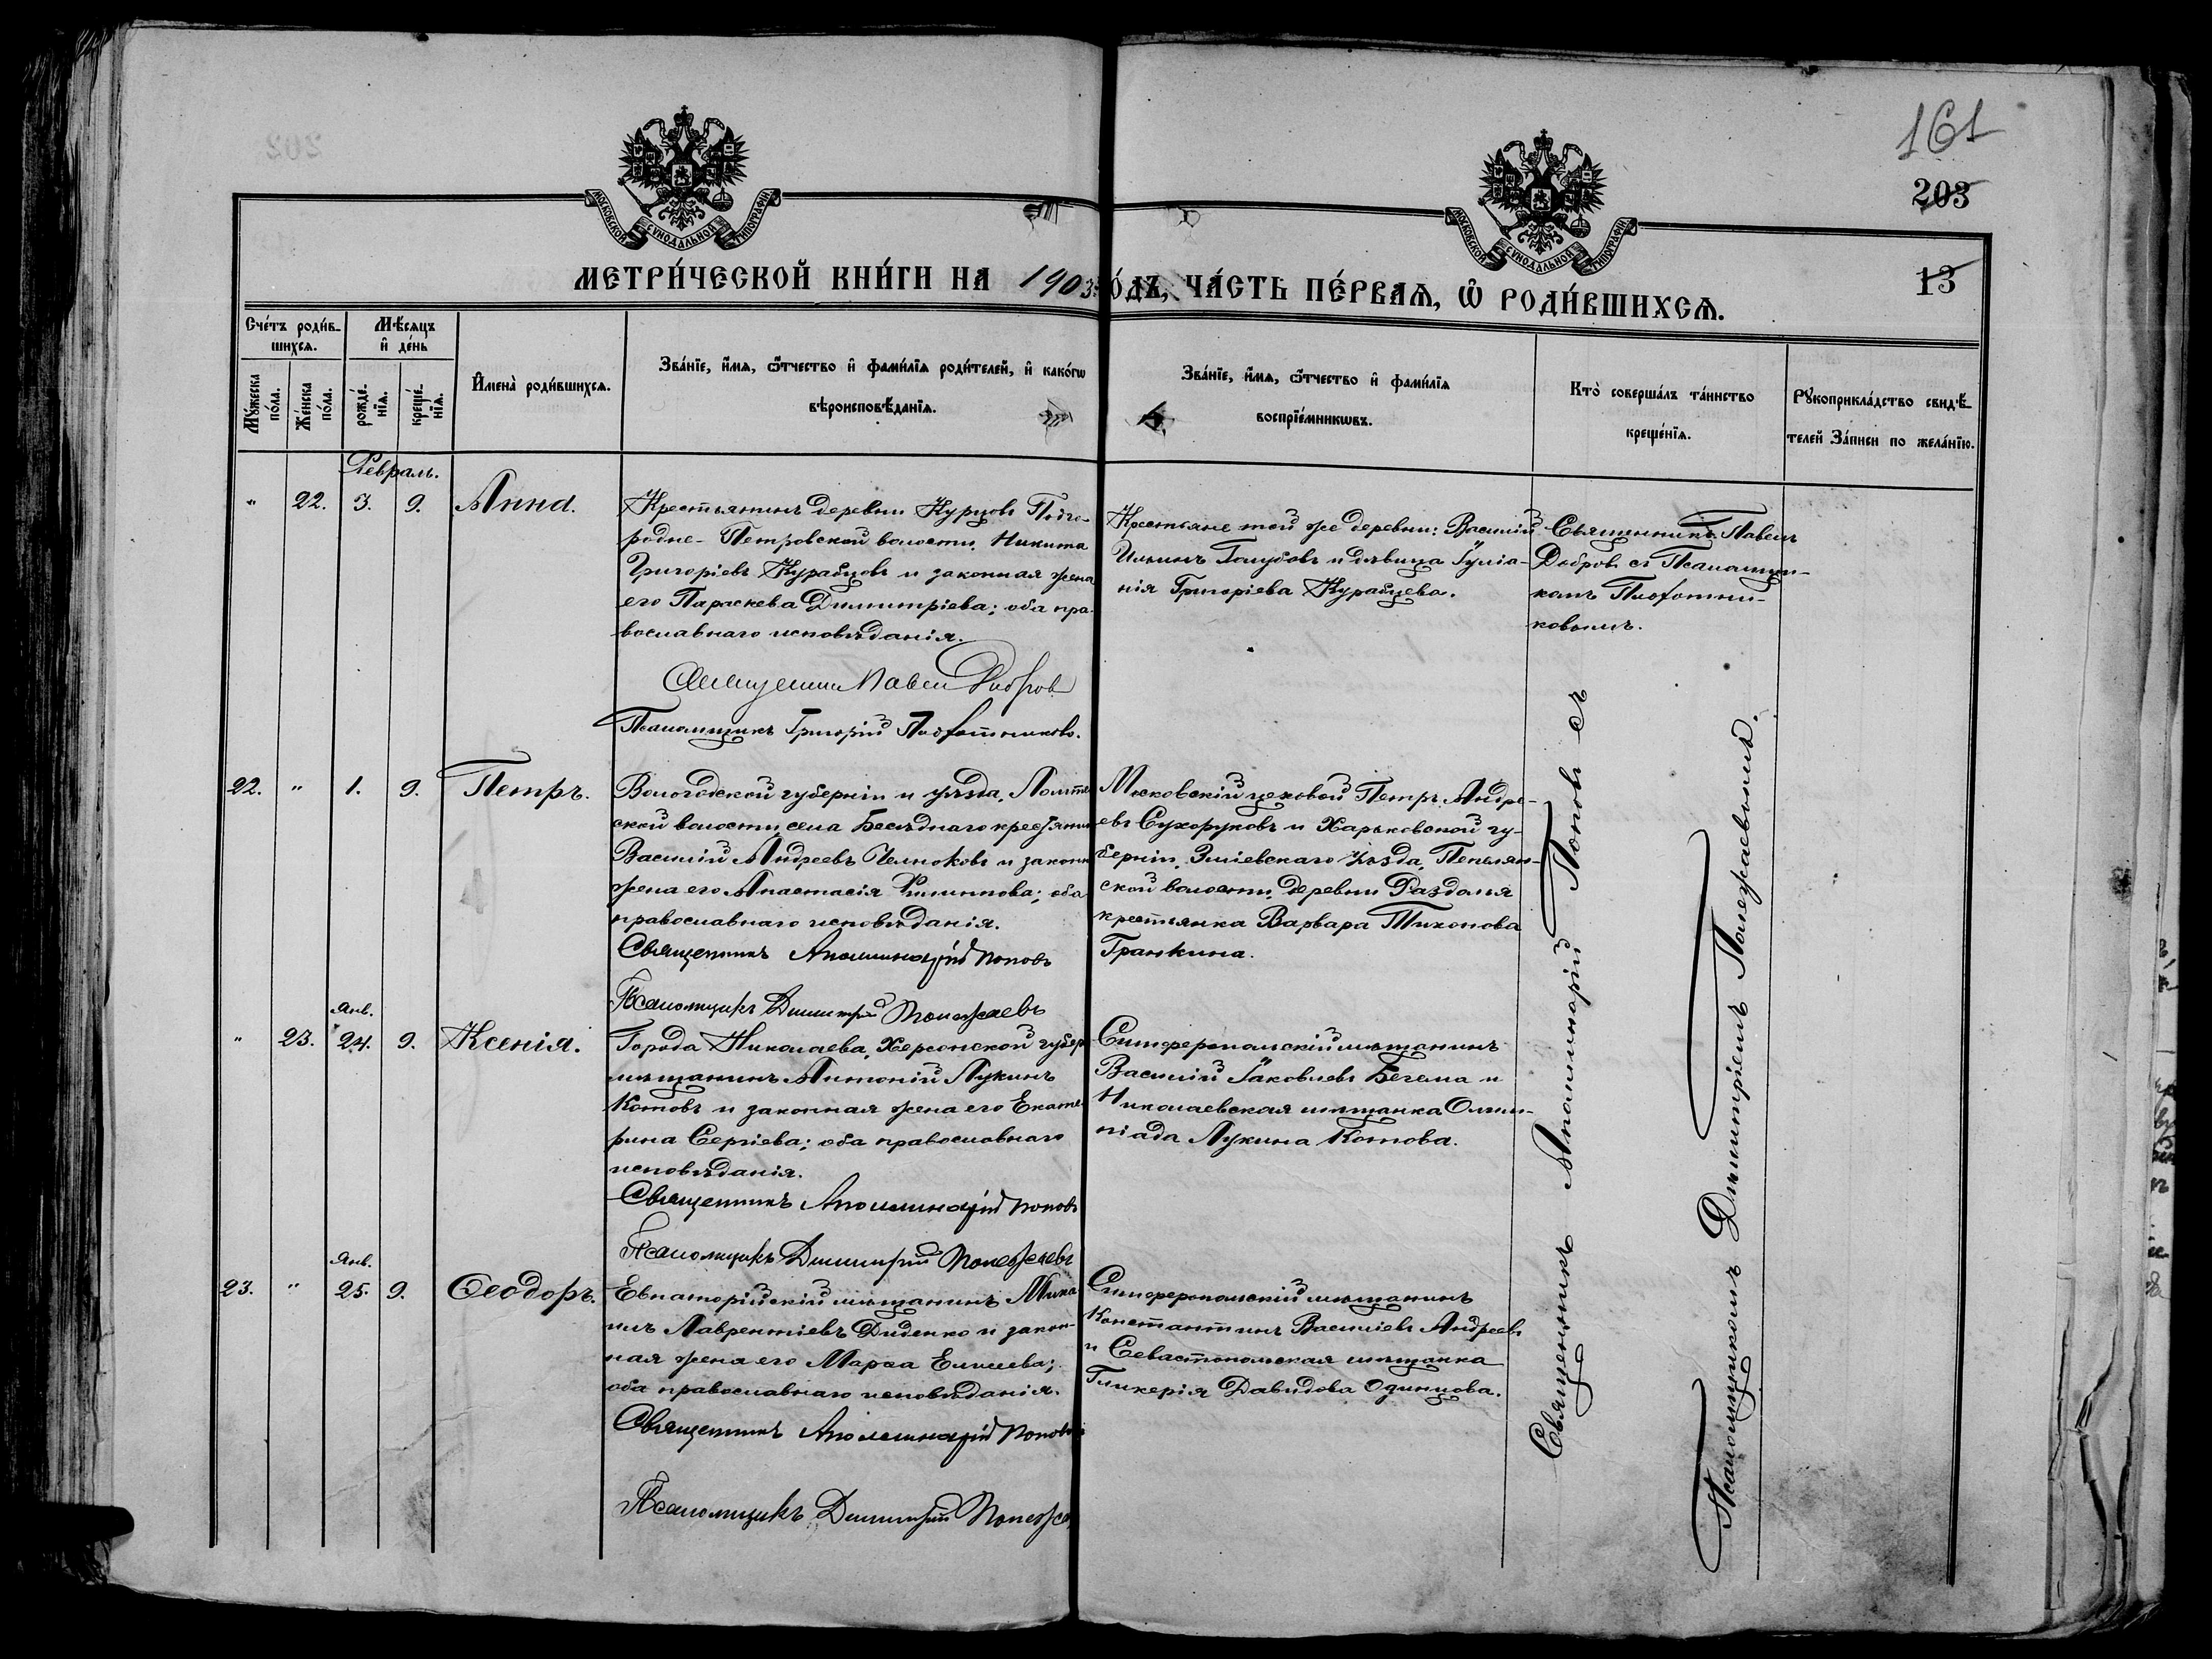 161
203
13
МОСКОВСКОЙ СѴНОДАЛЬНОЙ ТИПОГРАФІИ
МОСКОВСКОЙ СѴНОДАЛЬНОЙ ТИПОГРАФІИ
МЕТРИ́ЧЕСКОЙ КНИ́ГИ НА 1903 ГО́ДЪ, ЧА́СТЬ ПЕ́РВАѦ, Ѡ҆ РОДИ́ВШИХСѦ.
Сче́тъ роди́в-
шихсѧ.
Мѣ́сѧцъ
и҆ де́нь
Мꙋ́жеска
по́ла.
Же́нска
по́ла.
рожде́-
нїѧ.
креще́-
нїѧ.
И҆мена̀ роди́вшихсѧ.
Зва́нїе, и҆́мѧ, ѻ҆́тчество и҆ фами́лїѧ роди́телей, и҆ како́гѡ
вѣроисповѣ́данїѧ.
Зва́нїе, и҆́мѧ, ѻ҆́тчество и҆ фами́лїѧ
воспрїе́мникѡвъ.
Кто̀ соверша́лъ та́инство
креще́нїѧ.
Рꙋкоприкла́дство свидѣ́-
телей За́писи по жела́нїю.
Февраль.
" 22. 3. 9. Анна.
Крестьянинъ деревни Курцовъ Подго-
родне-Петровской волости, Никита
Григоріевъ Курабцовъ и законная жена
его Параскева Димитріева; оба пра-
вославнаго исповѣданія.
Священникъ Павелъ Добровъ
Псаломщикъ Григорій Плотниковъ.
Крестьяне той же деревни: Василій
Ильинъ Голубовъ и дѣвица Іуліа-
нія Григоріева Курабцева.
Священникъ Павелъ
Добровъ съ Псаломщи-
комъ Плотни-
ковымъ.
22. " 1. 9. Петръ.
Вологодской губерніи и уѣзда,
ской волости, села Бесѣднаго крестьянин
Василій Андреевъ Челноковъ и законн
жена его Анастасія Филиппова; оба
православнаго исповѣданія.
Священникъ Аполлинарій Поповъ
Псаломщикъ Димитрій Полежаевъ
Московскій цеховой Петръ Андре-
евъ Сухоруковъ и Харьковской гу-
берніи, Зміевскаго уѣзда,
ской волости, деревни Раздолья
крестьянка Варвара Тихонова
Гранкина.
Янв.
" 23. 24. 9. Ксенія.
Города Николаева, Херсонской губер
мѣщанинъ Антоній Лукинъ
Котовъ и законная жена его Екате-
рина Сергіева; оба православнаго
исповѣданія.
Священникъ Аполлинарій Поповъ
Псаломщикъ Димитрій Полежаевъ
Симферопольскій мѣщанинъ
Василій Іаковлевъ Бегема и
Николаевская мѣщанка Олим-
піада Лукина Котова.
Янв.
23. " 25. 9. Ѳеодоръ.
Евпаторійскій мѣщанинъ Миха
илъ Лаврентіевъ Диденко и закон-
ная жена его Марѳа Елисеева;
оба православнаго исповѣданія.
Священникъ Аполлинарій Поповъ
Псаломщикъ Димитрій Полежа
Симферопольскій мѣщанинъ
Константинъ Василіевъ Андреевъ
и Севастопольская мѣщанка
Гликерія Давидова Одинцова.
Священникъ Аполлинарій Поповъ съ
Псаломщикомъ Димитріемъ Полежаевымъ.